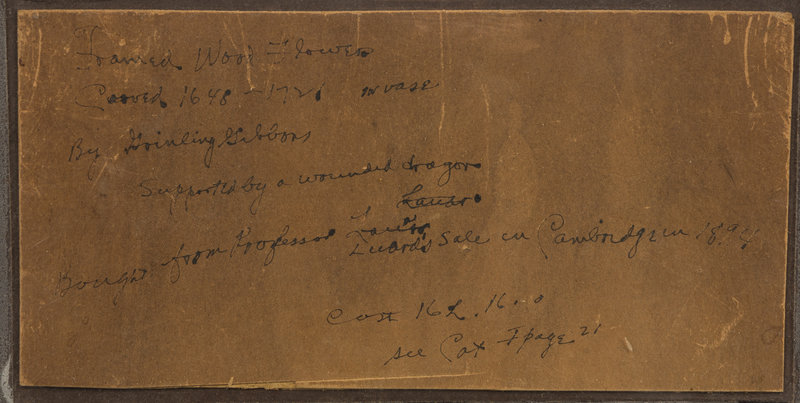 Framed Wood Flowers
Carved 1648 - 1721 in vase
By Grinling Gibbons
Supported by a wounded dragon
Bought from Professor Luard's Sale in Cambridge in 1894
Cost 16 L. 16.. 0
see Cat I page 21